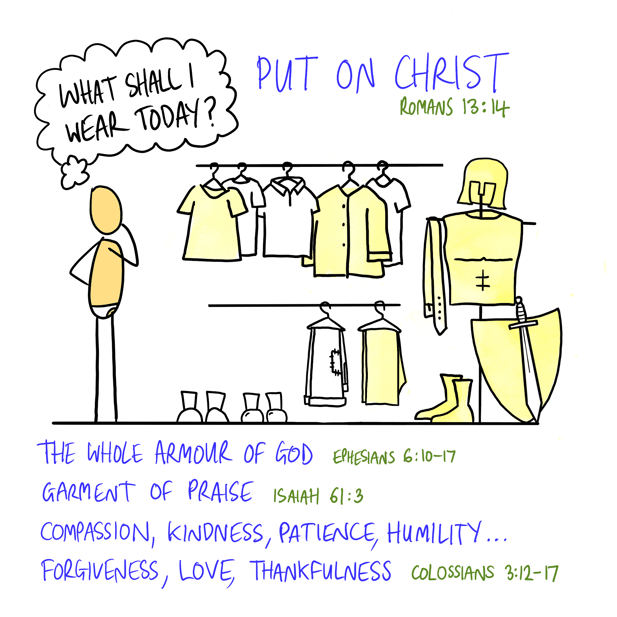 WHAT SHALL I
WEAR TODAY?
PUT ON CHRIST
ROMANS 13:14
THE WHOLE ARMOUR OF GOD EPHESIANS 6:10-17
GARMENT OF PRAISE ISAIAH 61:3
COMPASSION, KINDNESS, PATIENCE, HUMILITY...
FORGIVENESS, LOVE, THANKFULNESS COLOSSIANS 3:12-17